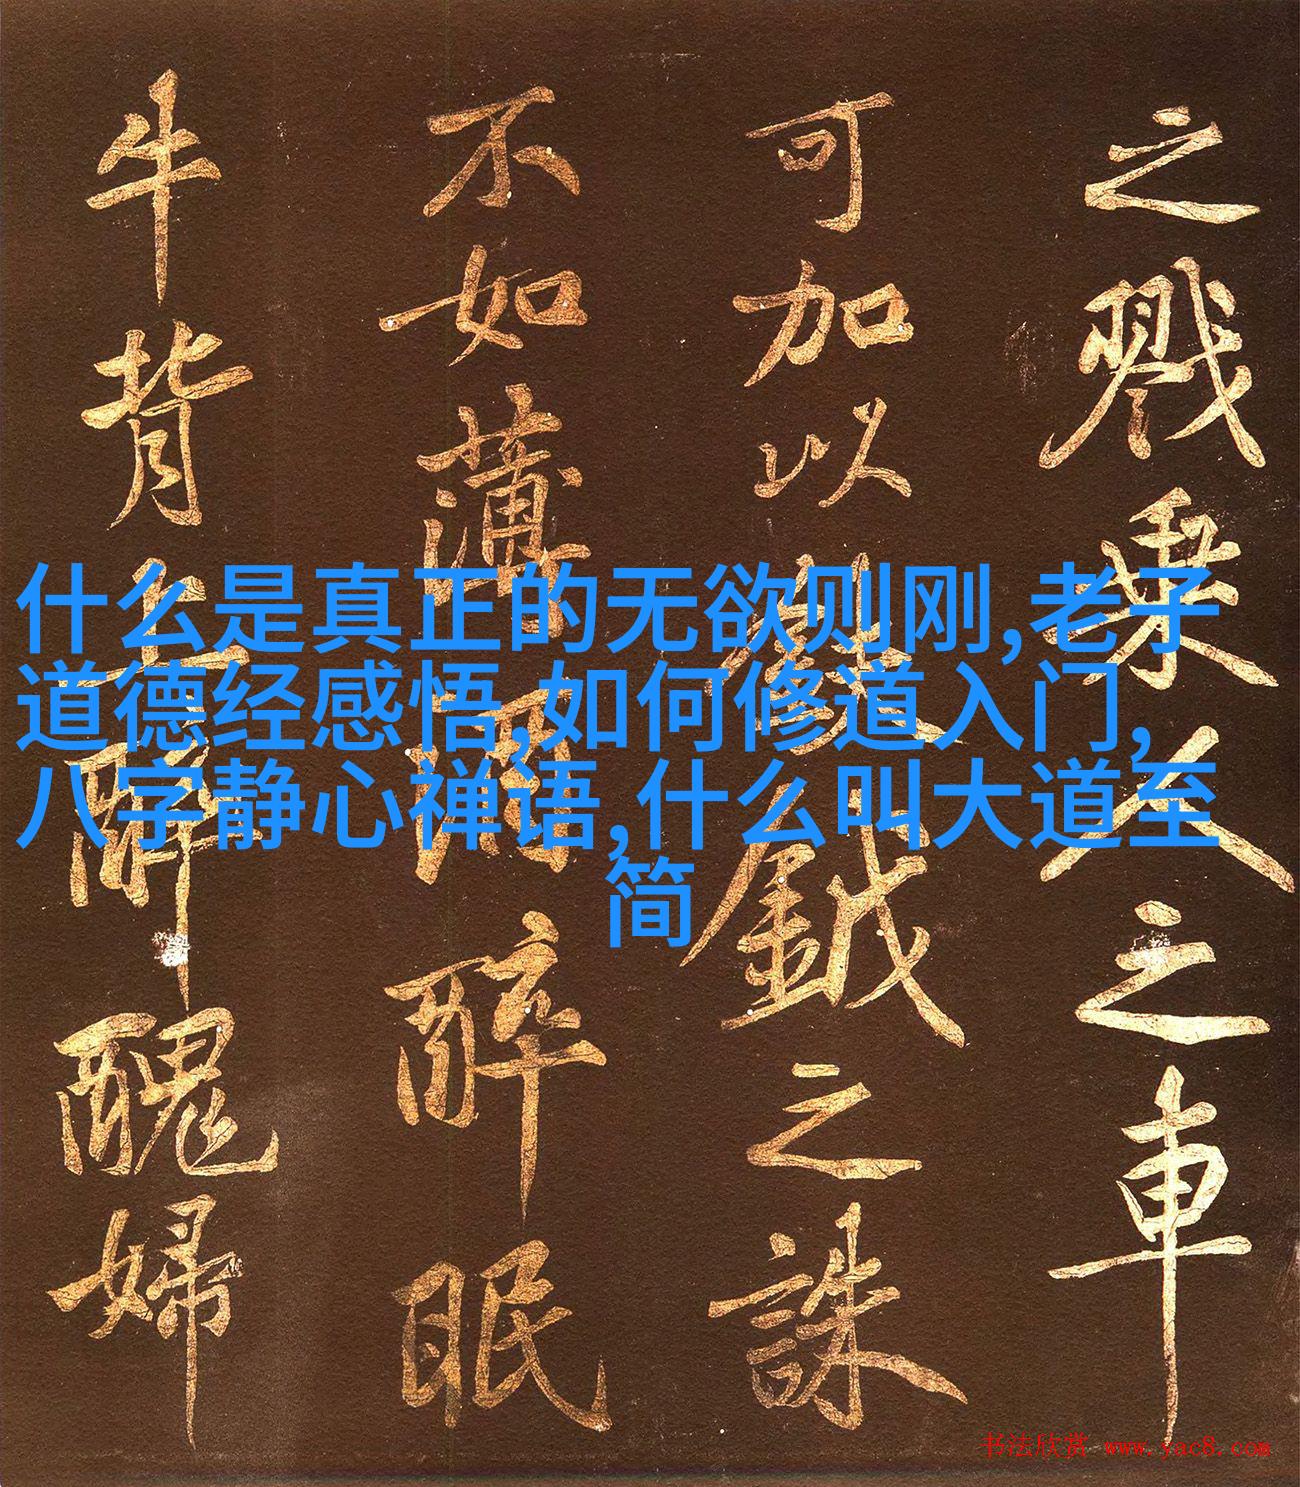 什么是真正的无欲则刚,老子
道德经感悟,如何修道入门,
八字静心禅语,什么叫大道至
简
之戮乘人之車
可加以鉞之誅
不如蒲醉眠
牛背上醉醜婦
书法欣赏 www.yac8.com